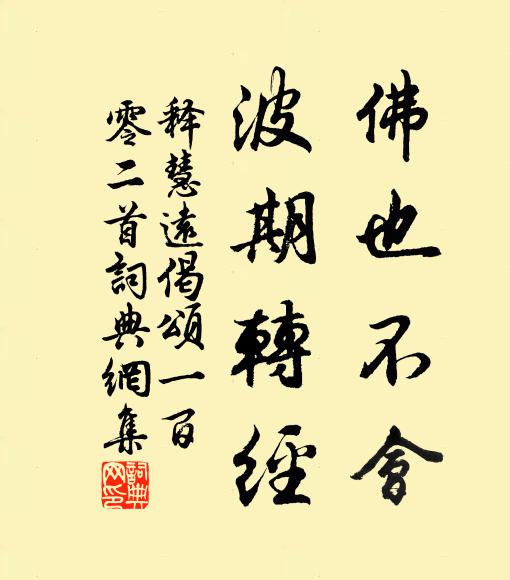 佛也不會
波期轉經
释慧遠偈頌一百
零二首詞典網集
詞典网印